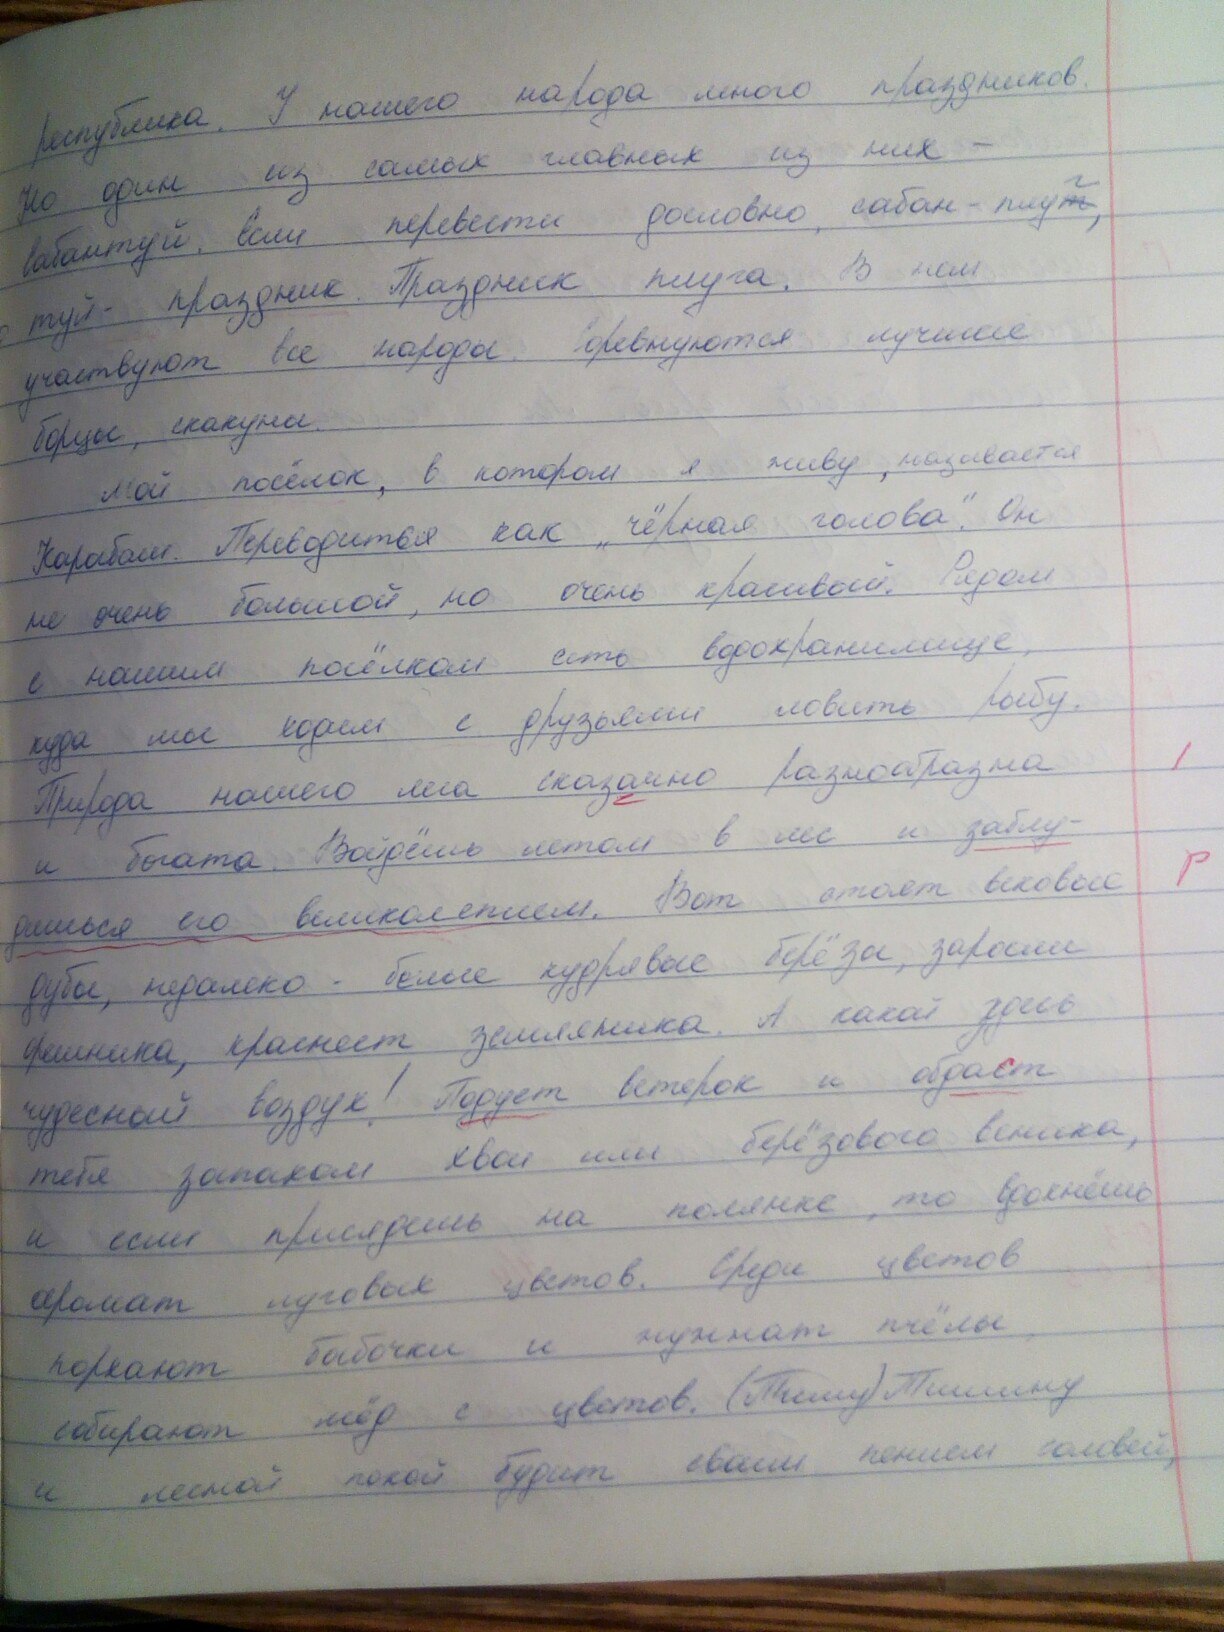 республика. У нашего народа много праздников.
Но один из самых главных из них -
сабантуй. Если перевести дословно, сабан - плуг,
туй - праздник. Праздник плуга. В нём
участвуют все народы. Соревнуются лучшие
борцы, скакуны.
Мой посёлок, в котором я живу, называется
Карабаш. Переводиться как „чёрная голова". Он
не очень большой, но очень красивый. Рядом
с нашим посёлком есть водохранилище,
куда мы ходим с друзьями ловить рыбу.
Природа нашего леса сказачно разнообразна
и богата. Войдёшь летом в лес и заблу-
дишься его великолепием. Вот стоят вековые
дубы, недалеко - белые кудрявые берёзы, заросли
орешника, краснеет земляника. А какой здесь
чудесный воздух! Подует ветерок и обдаст
тебя запахом хвои или берёзового веника,
и если присядешь на полянке, то вдохнёшь
аромат луговых цветов. Среди цветов
порхают бабочки и жужжат пчёлы,
собирают мёд с цветов. (Тишу) Тишину
и лесной покой будит своим пением соловей,
I
Р